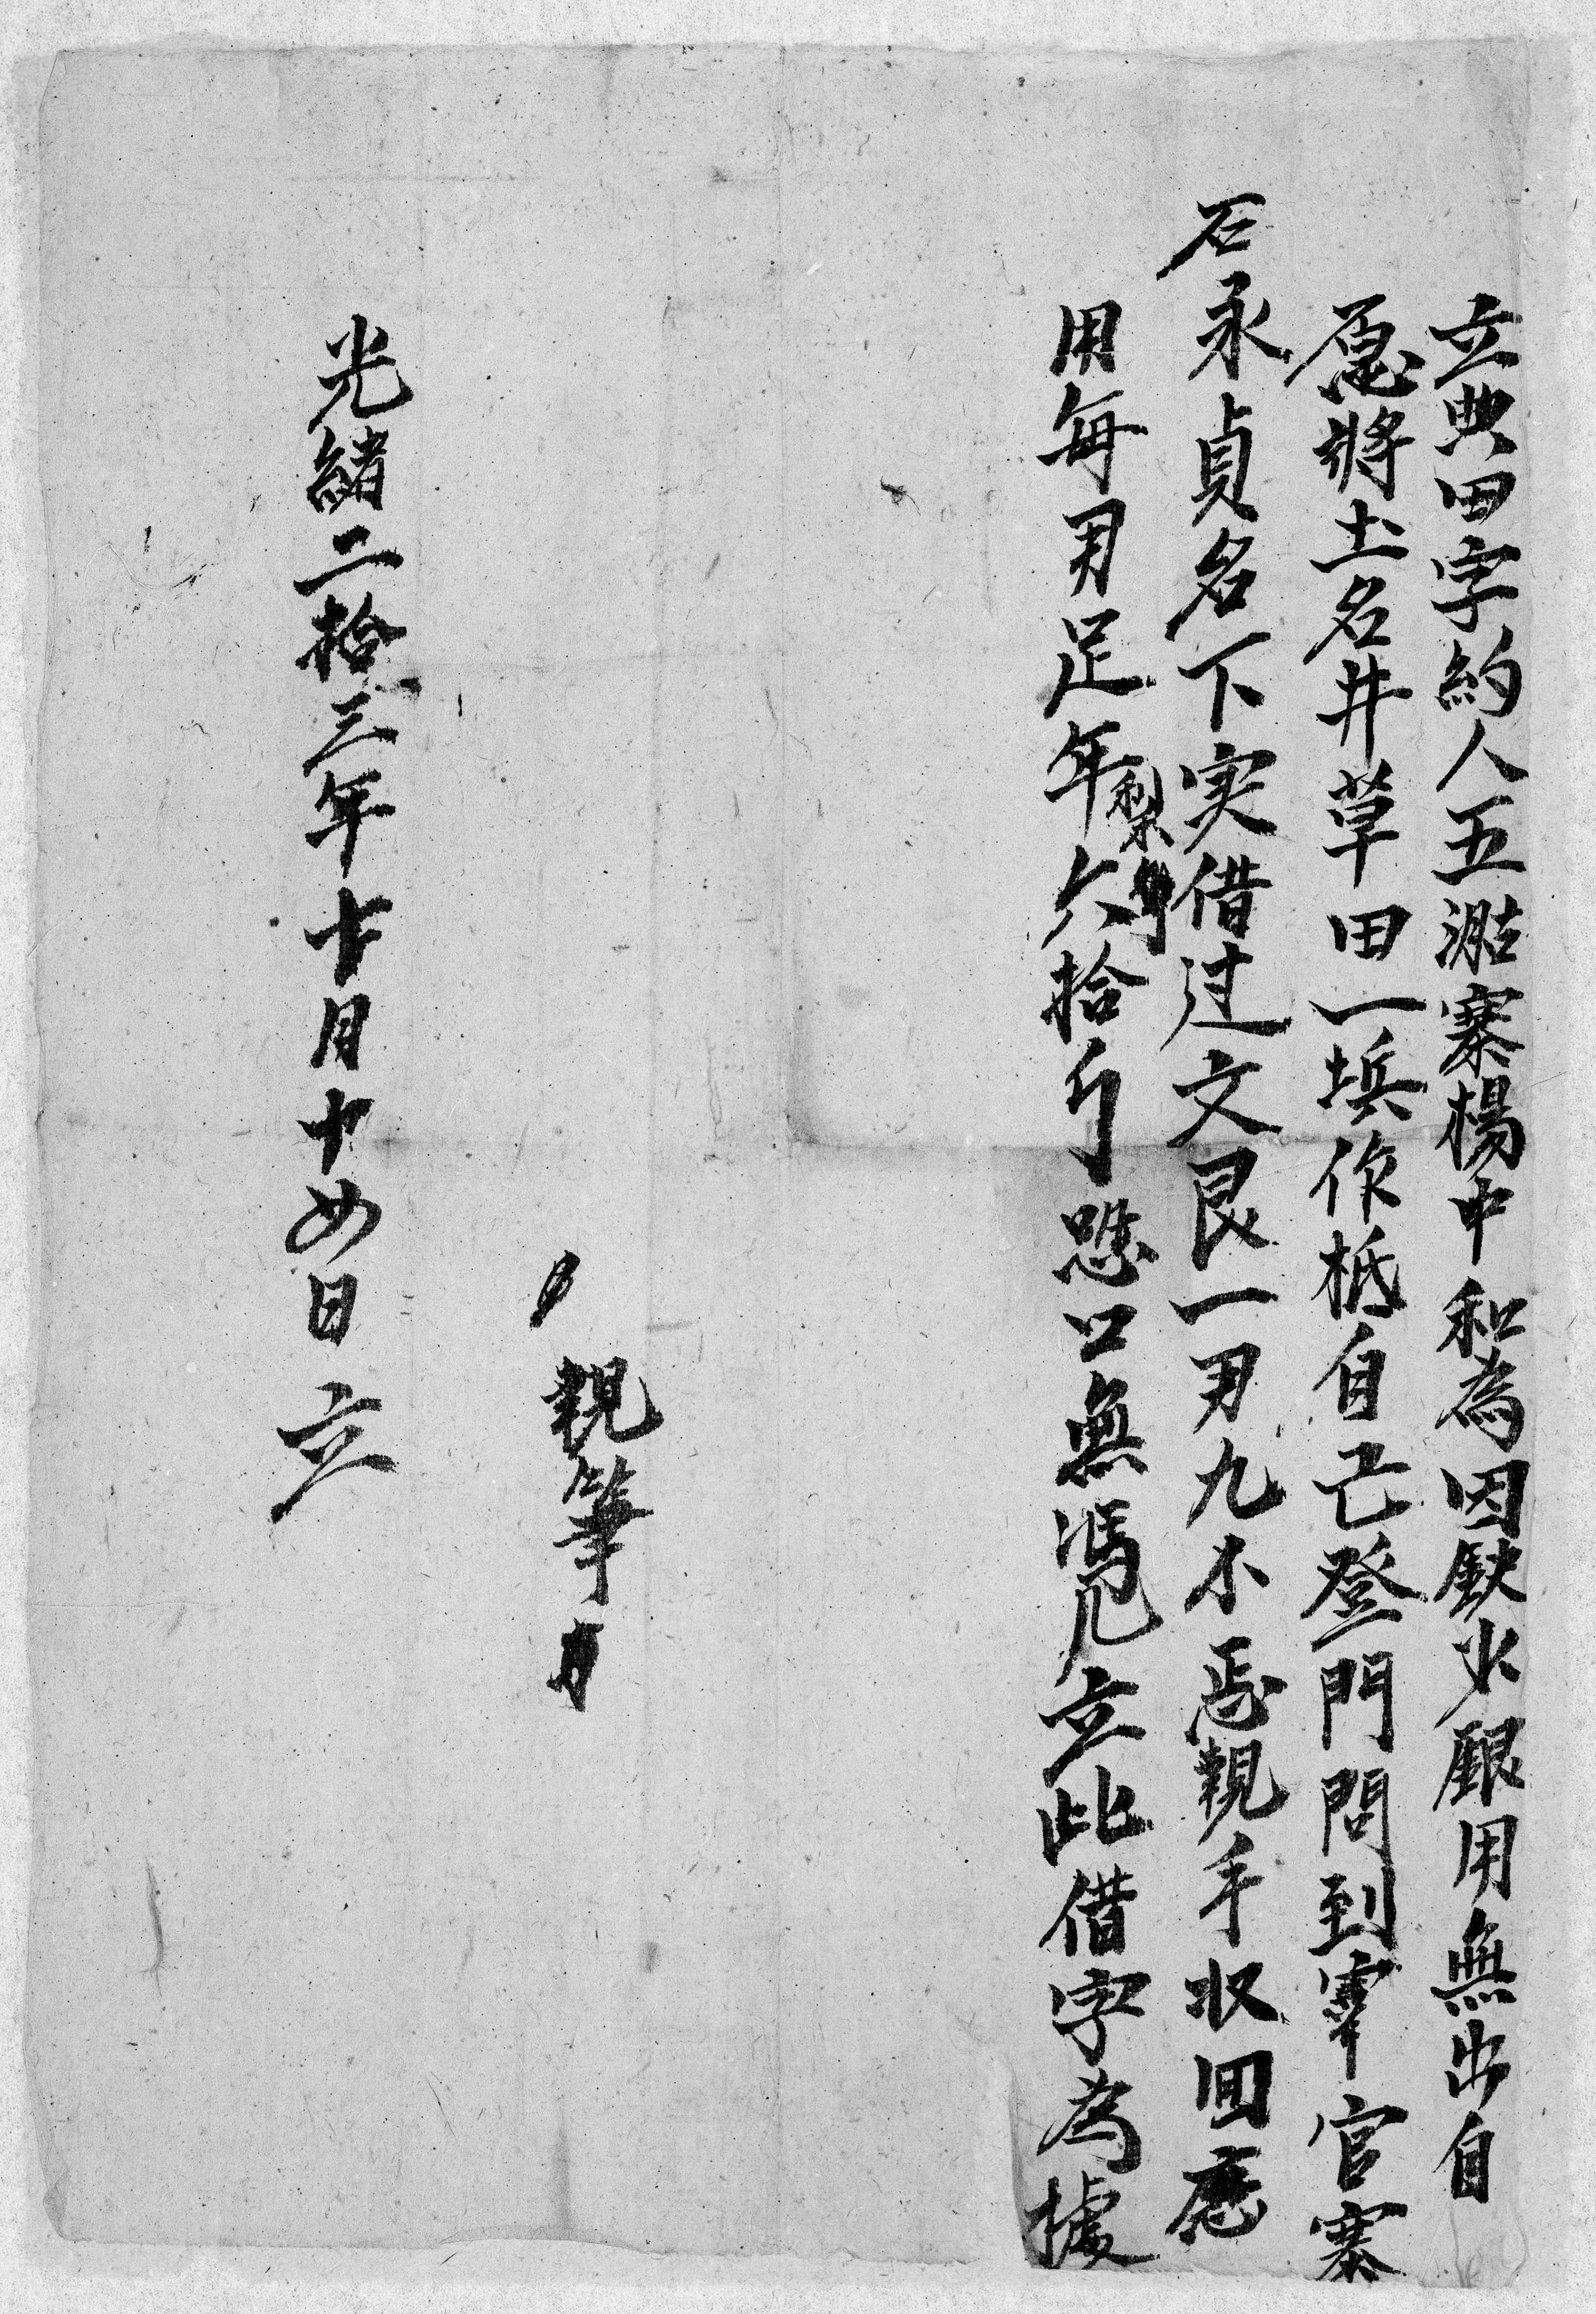 立典田字約人五湳寨楊中和為因缺少銀用無出自
愿將土名井草田一坵作抵自己登門問到宰官寨
石永貞名下实借过文艮一両九小㤙親手収回應
用每両足年梨禾六拾斤恐口無憑立此借字為據
親筆
光緒二拾三年十月十四日立